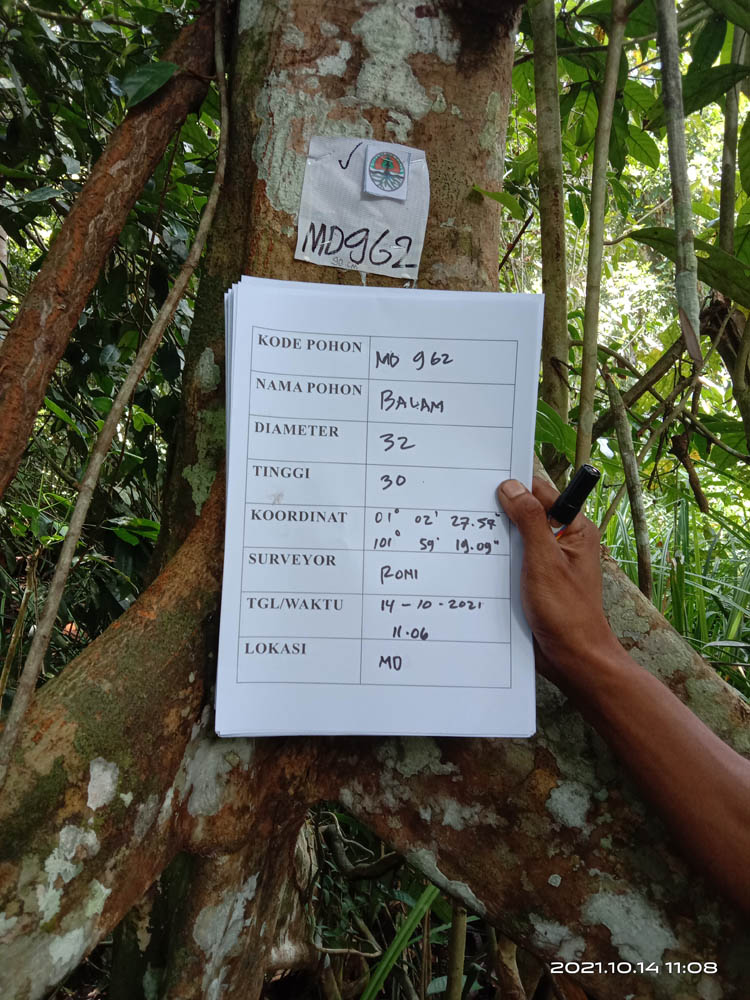 ✓
MD962
KODE POHON MD 962
NAMA POHON BALAM
DIAMETER 32
TINGGI 30
KOORDINAT 01° 02' 27.54"
101° 59' 19.09"
SURVEYOR RONI
TGL/WAKTU 14-10-2021
11.06
LOKASI MD
2021.10.14 11:08